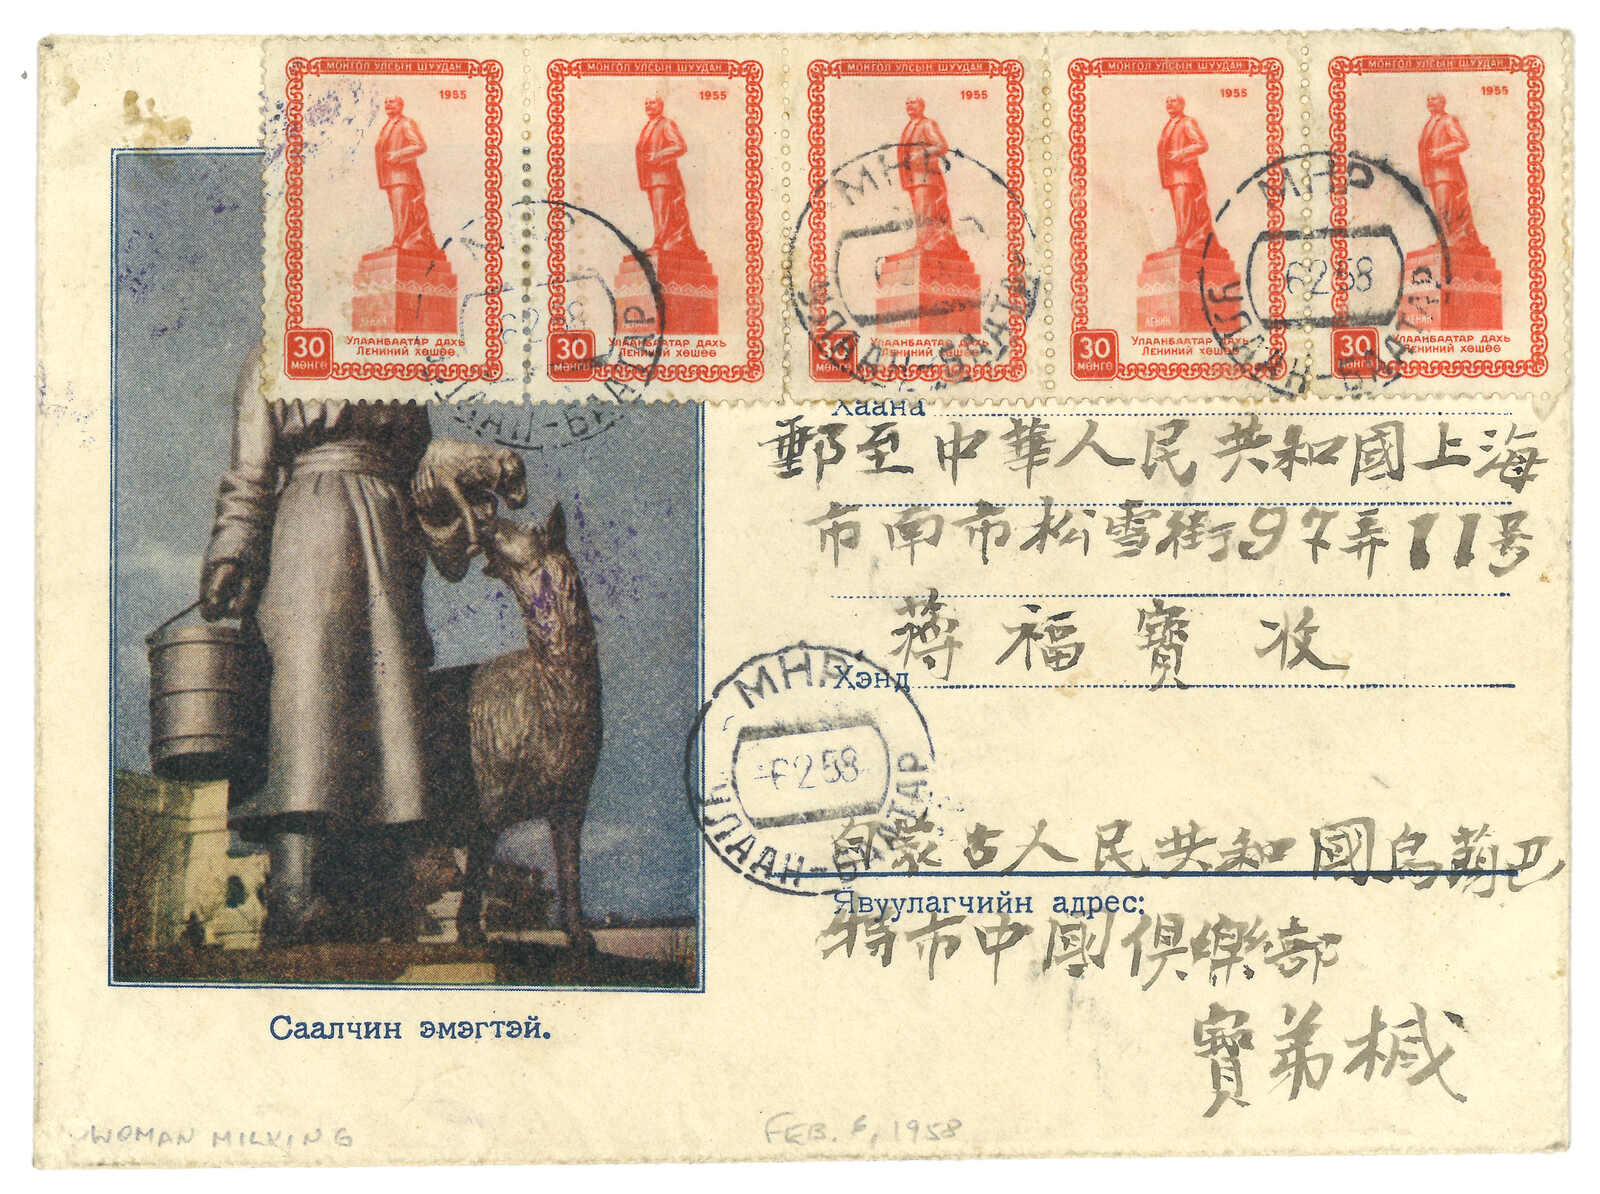 МОНГОЛ УЛСЫН ШУУДАН
1955
30
МӨНГӨ
ЛЕНИН
УЛААНБААТАР ДАХЬ
ЛЕНИНИЙ ХӨШӨӨ
МОНГОЛ УЛСЫН ШУУДАН
1955
30
МӨНГӨ
ЛЕНИН
УЛААНБААТАР ДАХЬ
ЛЕНИНИЙ ХӨШӨӨ
МОНГОЛ УЛСЫН ШУУДАН
1955
30
МӨНГӨ
ЛЕНИН
УЛААНБААТАР ДАХЬ
ЛЕНИНИЙ ХӨШӨӨ
МОНГОЛ УЛСЫН ШУУДАН
1955
30
МӨНГӨ
ЛЕНИН
УЛААНБААТАР ДАХЬ
ЛЕНИНИЙ ХӨШӨӨ
МОНГОЛ УЛСЫН ШУУДАН
1955
30
МӨНГӨ
ЛЕНИН
УЛААНБААТАР ДАХЬ
ЛЕНИНИЙ ХӨШӨӨ
МНР
УЛААН-БААТАР
МНР
-6258
УЛААН-БААТАР
Хаана
郵至中華人民共和國上海
市南市松雪街97弄11号
蔣福寶收
Хэнд
МНР
-6258
УЛААН-БААТАР
自蒙古人民共和國烏蘭巴
Явуулагчийн адрес:
特市中國俱樂部
寶弟椷
Саалчин эмэгтэй.
WOMAN MILKING
FEB. 6, 1958